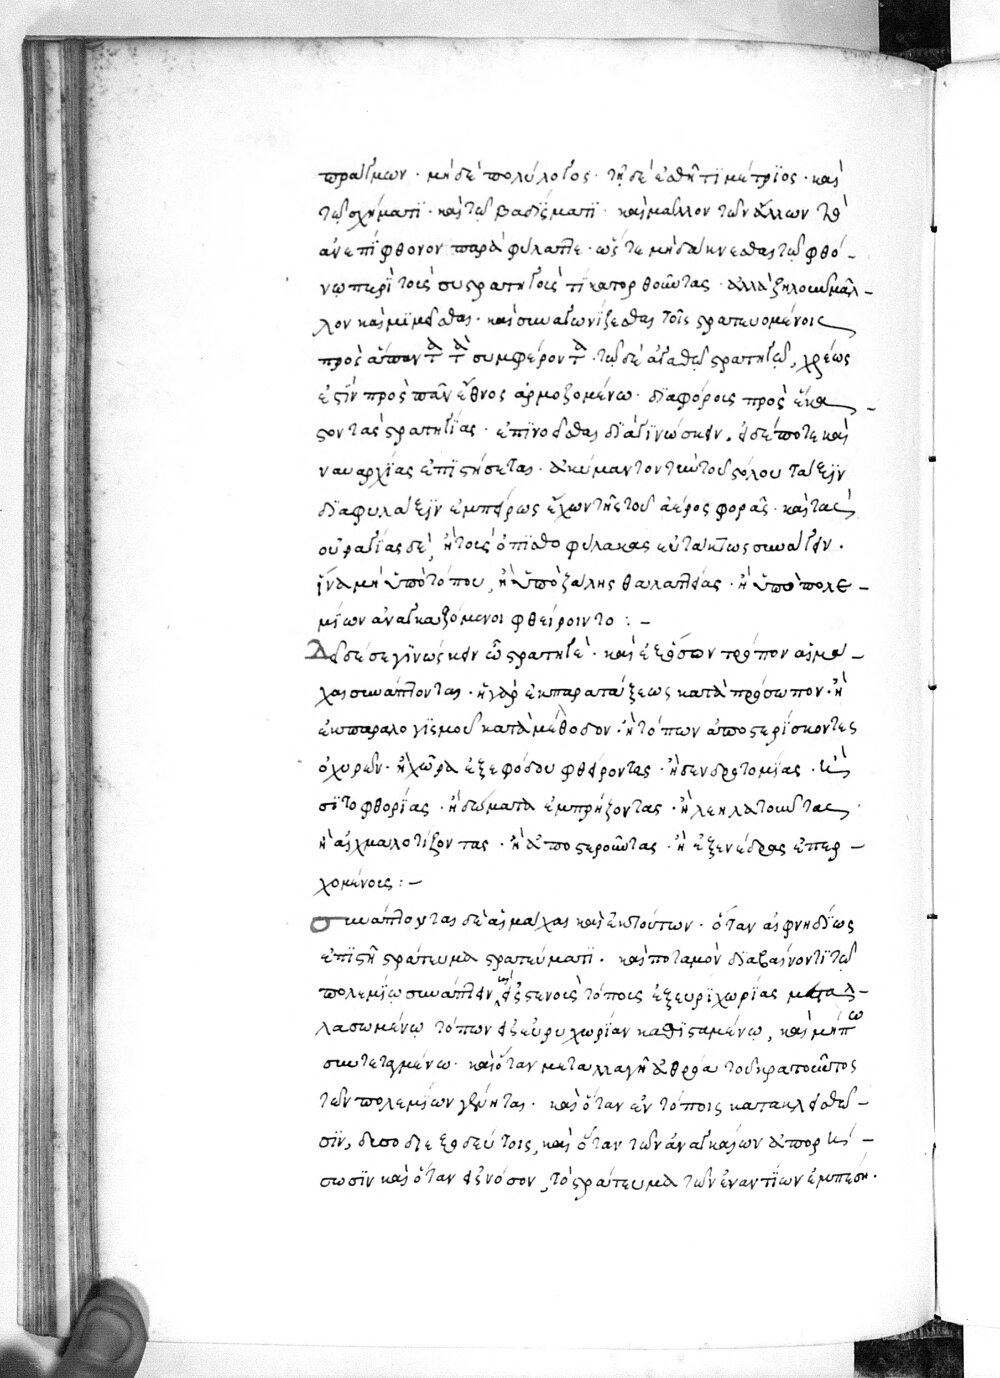 πράγμων · μὴ δὲ πολύλογος · τῇ δὲ ἐσθῆτι μέτριος · καὶ
τῷ σχήματι · καὶ τῷ βαδίσματι · καὶ μᾶλλον τῶν ἄλλων τὸ
ἀνεπίφθονον παραφύλαττε · ὥστε μὴ δάκνεσθαι τῷ φθό-
νῳ περὶ τοὺς συστρατήγους τι κατορθοῦντας · ἀλλὰ ζηλοῦν μᾶλ-
λον καὶ μιμεῖσθαι · καὶ συναγωνίζεσθαι τοῖς στρατευομένοις
πρὸς ἅπαντα τὰ συμφέροντα · τῷ δὲ ἀγαθῷ στρατηγῷ, χρέως
ἐστὶν πρὸς πᾶν ἔθνος ἁρμοζομένω · διαφόροις πρὸς ἕκα-
στον τὰς στρατηγίας · ἐπινοεῖσθαι διαγινώσκειν, εἰ δέ ποτε καὶ
ναυαρχίας ἐπιστήσεται · ἀκύμαντον τὴν τοῦ στόλου τάξιν
διαφυλάξιν ἐμπείρως ἔχων τῆς τοῦ ἀέρος φορᾶς · καὶ τὰς
οὐραγίας δὲ, ἤτοι ὀπισθοφύλακας εὐτάκτως συνάγειν ·
ἵνα μὴ ὑπὸ τόπου, ἢ ὑπὸ ζάλης θαλαττίας · ἢ ὑπὸ πολε-
μίων ἀναγκαζόμενοι φθείροιντο : -
Δεῖ δέ σε γινώσκειν ὦ στρατηγὲ · καὶ ἐξ ὅσων τρόπον αἱ μά-
χαι συνάπτονται · ἢ γὰρ ἐκ παρατάξεως κατὰ πρόσωπον · ἢ
ἐκ παραλογισμοῦ κατὰ μέθοδον · ἢ τόπων ἀποστερίσκοντες
ὀχυρῶν · ἢ χώρα ἐξ ἐφόδου φθείροντες · ἢ δενδροτομίας · καὶ
σιτοφθορίας · ἢ δώματα ἐμπρήζοντας · ἢ λεηλατοῦντας
ἢ αἰχμαλοτίζοντας · ἢ ἀποστεροῦντας · ἢ ἐξ ἐνέδρας ἐπερ-
χομένοις : -
Συνάπτονται δὲ αἱ μάχαι καὶ ἐκ τούτων · ὅταν αἰφνηδίως
ἐπιστῆ στράτευμα στρατεύματι · καὶ ποταμὸν διαβαίνοντι τῷ
πολεμίω συνάπτειν εἰς ξένοις τόποις ἐξ εὐριχωρίας μεταλ-
λασωμένω τόπων εἰς εὐρυχωρίαν καθισταμένῳ, καὶ μήπω
συντεταγμένω · καὶ ὅταν μεταλλαγῆ ἀθρόα τοῦ κρατοῦντος
τῶν πολεμίων γένηται · καὶ ὅταν ἐν τόποις κατακλεισθῶ-
σιν, δυσοδιεξοδεύτοις, καὶ ὅταν τῶν ἀναγκαίων ἀπορή-
σωσιν καὶ ὅταν εἰς νόσον, τὸ στράτευμα τῶν ἐναντίων ἐμπέση ·